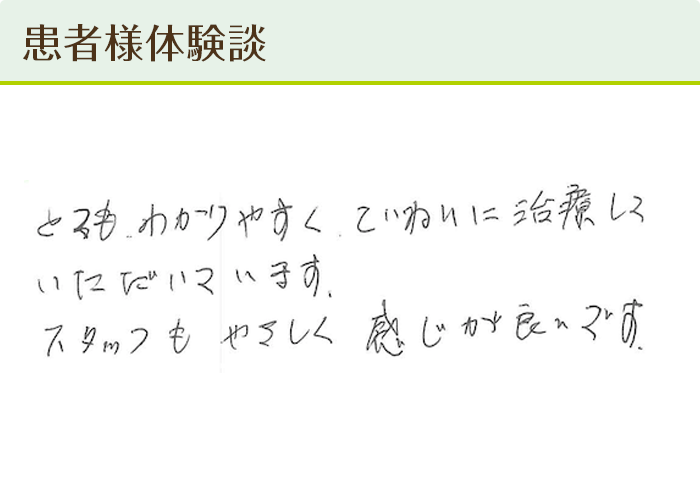 患者様体験談
とてもわかりやすく、ていねいに治療して
いただいています。
スタッフもやさしく感じが良いです。